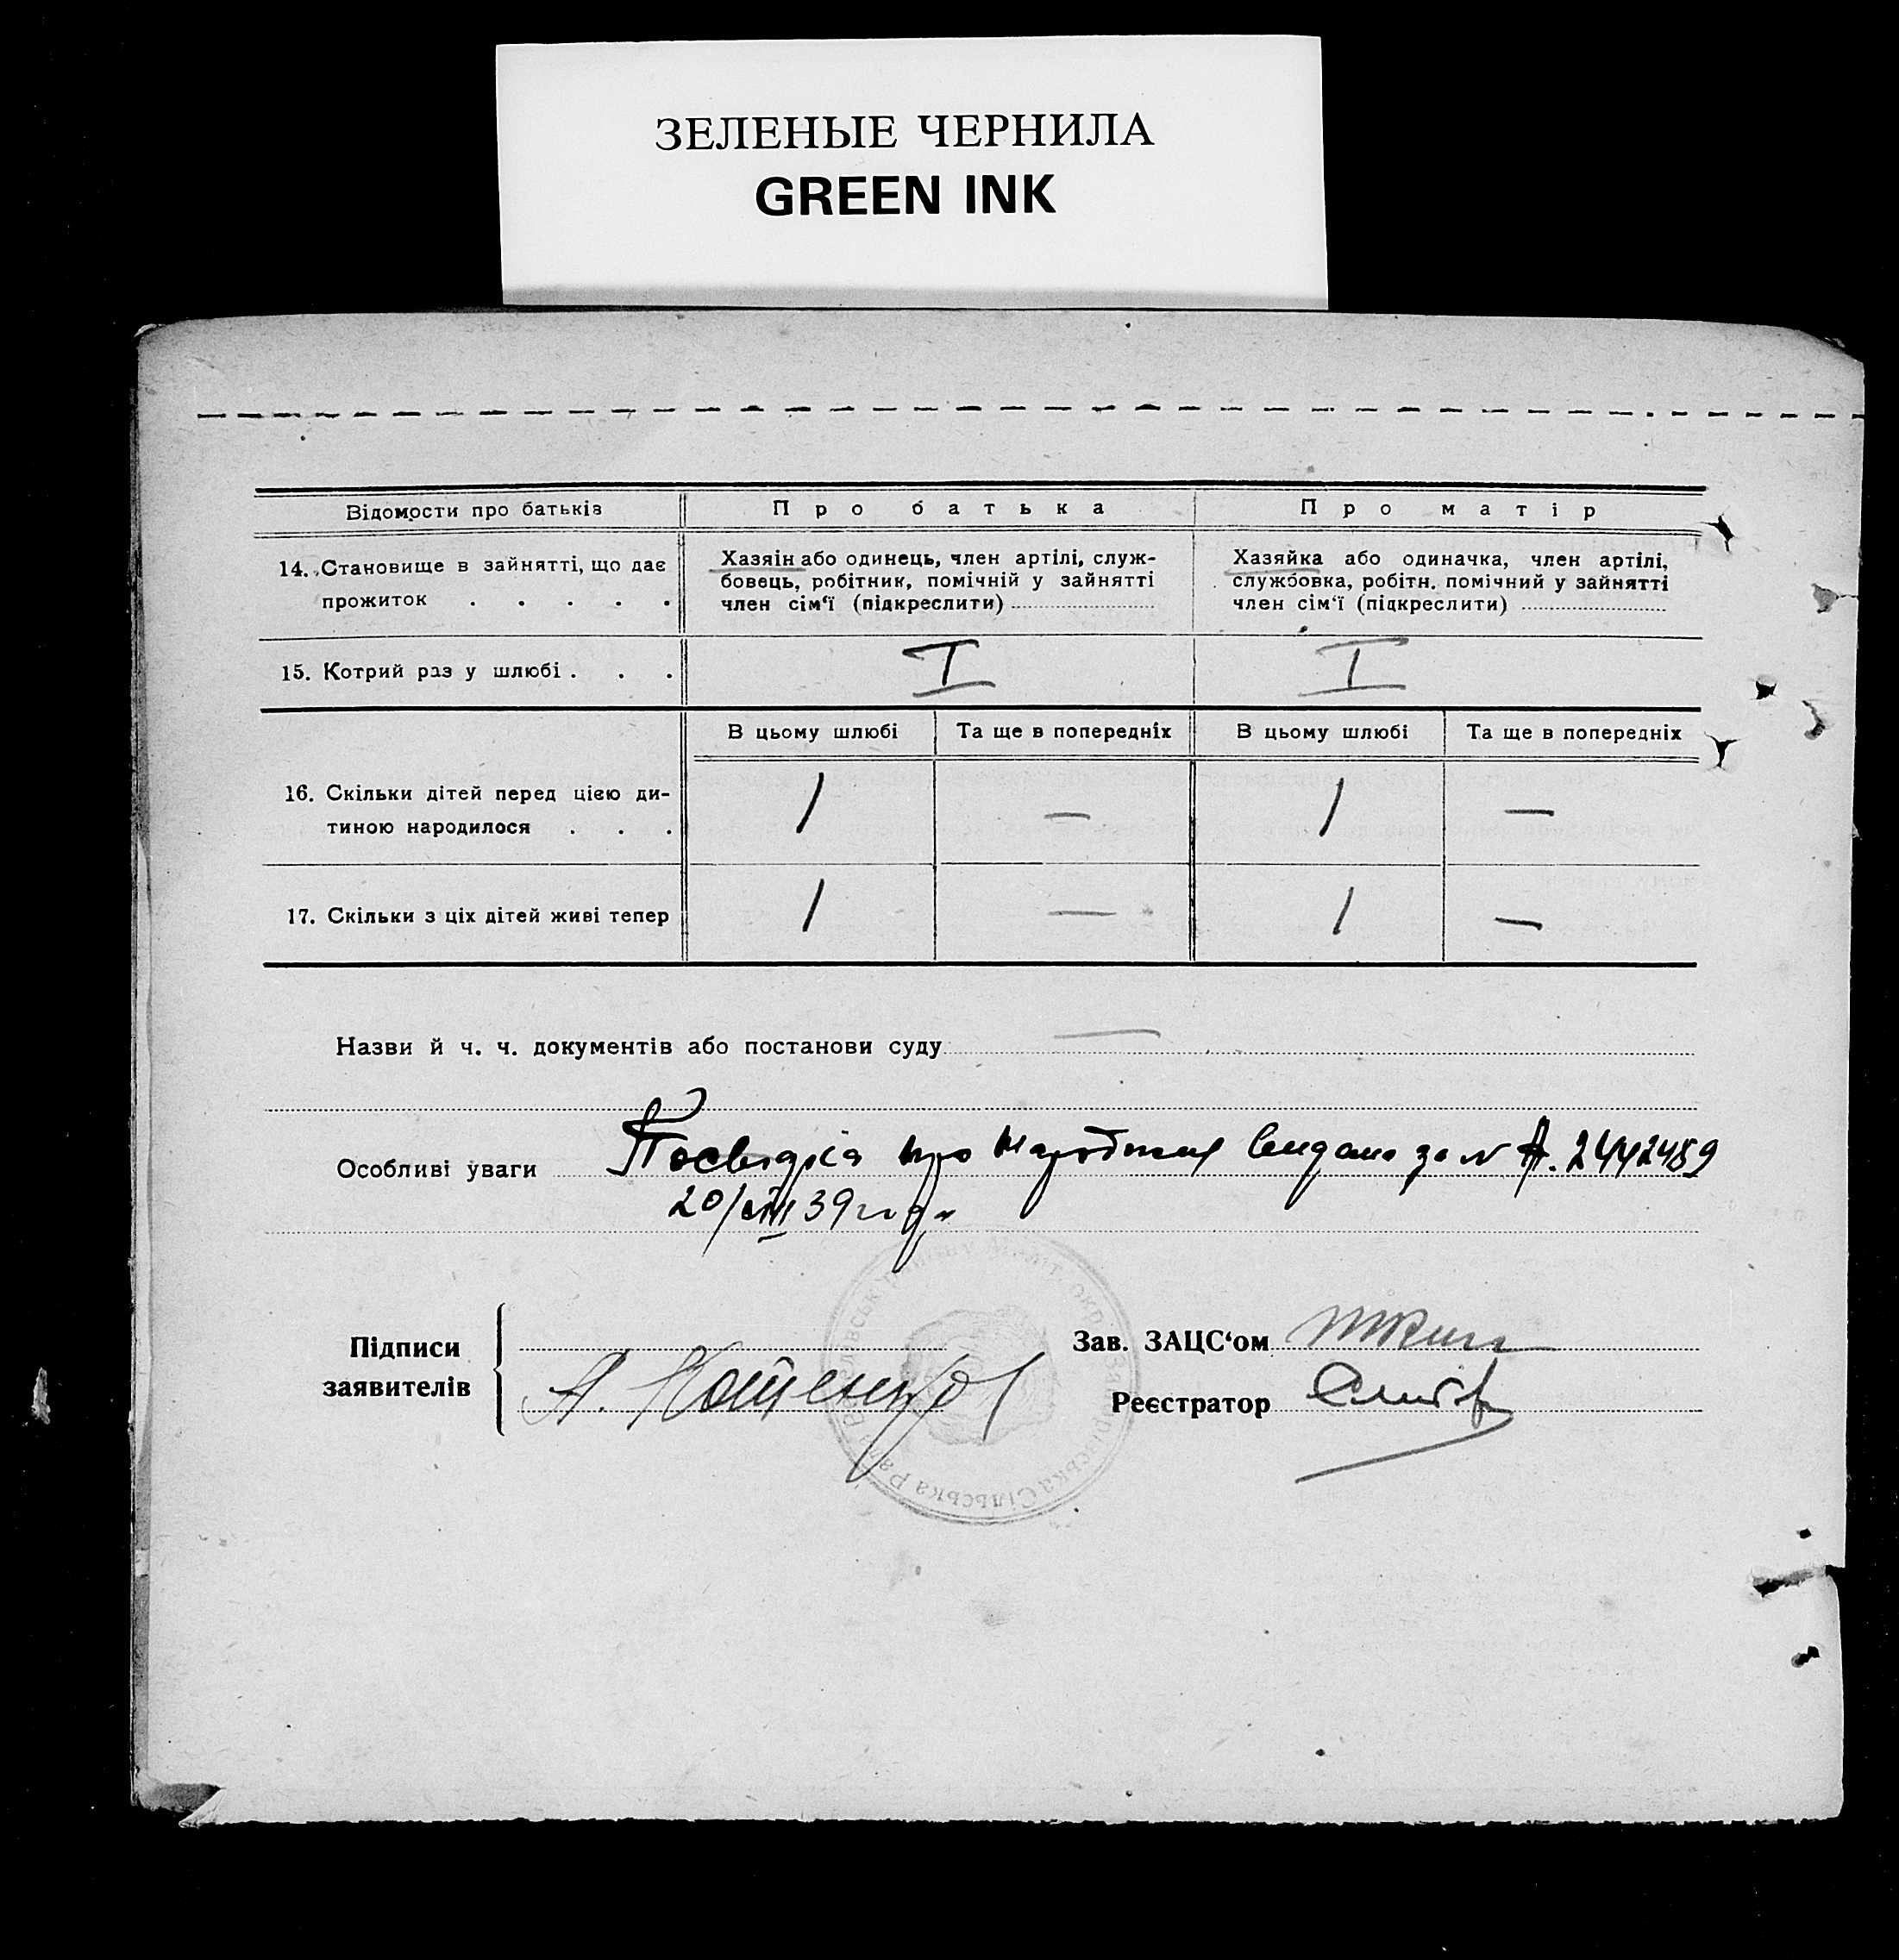 ЗЕЛЕНЫЕ ЧЕРНИЛА
GREEN INK
Відомости про батьків
Про батька
Про матір
14. Становище в зайнятті, що дає
прожиток . . . . .
Хазяін або одинець, член артілі, служ-
бовець, робітник, помічній у зайнятті
член сім'ї (підкреслити)
Хазяйка або одиначка, член артілі,
службовка, робітн. помічний у зайнятті
член сім'ї (підкреслити)
15. Котрий раз у шлюбі . . .
I
I
В цьому шлюбі
Та ще в попередніх
В цьому шлюбі
Та ще в попередніх
16. Скільки дітей перед цією ди-
тиною народилося . . .
1
—
1
—
17. Скільки з ціх дітей живі тепер
1
—
1
—
Назви й ч. ч. документів або постанови суду —
Особливі уваги Посвідка про народження видана за N А. 2442489
20/VIII 39 года
Підписи
заявителів
А.
Зав. ЗАЦС'ом
Реєстратор
Сільська Рада